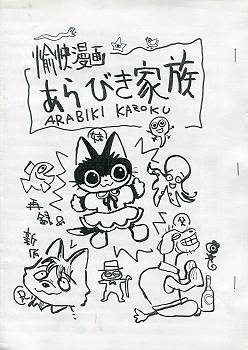 愉快漫画
あらびき家族
ARABIKI KAZOKU
妹
再録&
新作
父